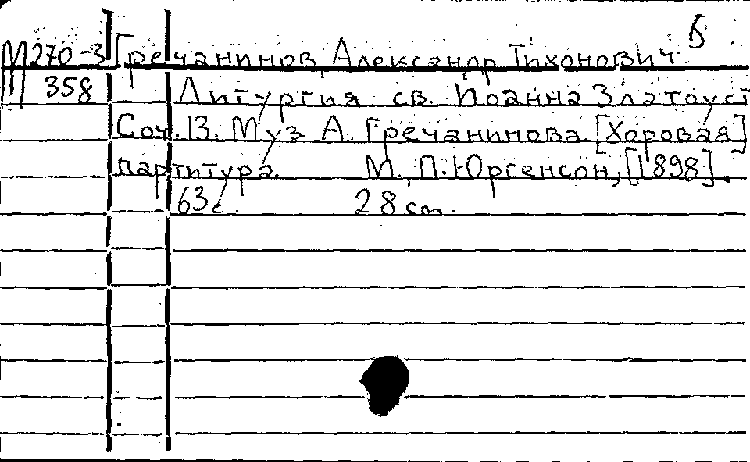 Б
М270-3 Гречанинов, Александр Тихонович
358 Литургия св. Иоанна Златоуст
Соч. 13. Муз. А. Гречанинова. [Хоровая]
партитура. М., П. Юргенсон, [1898].
63 с. 28 cm.